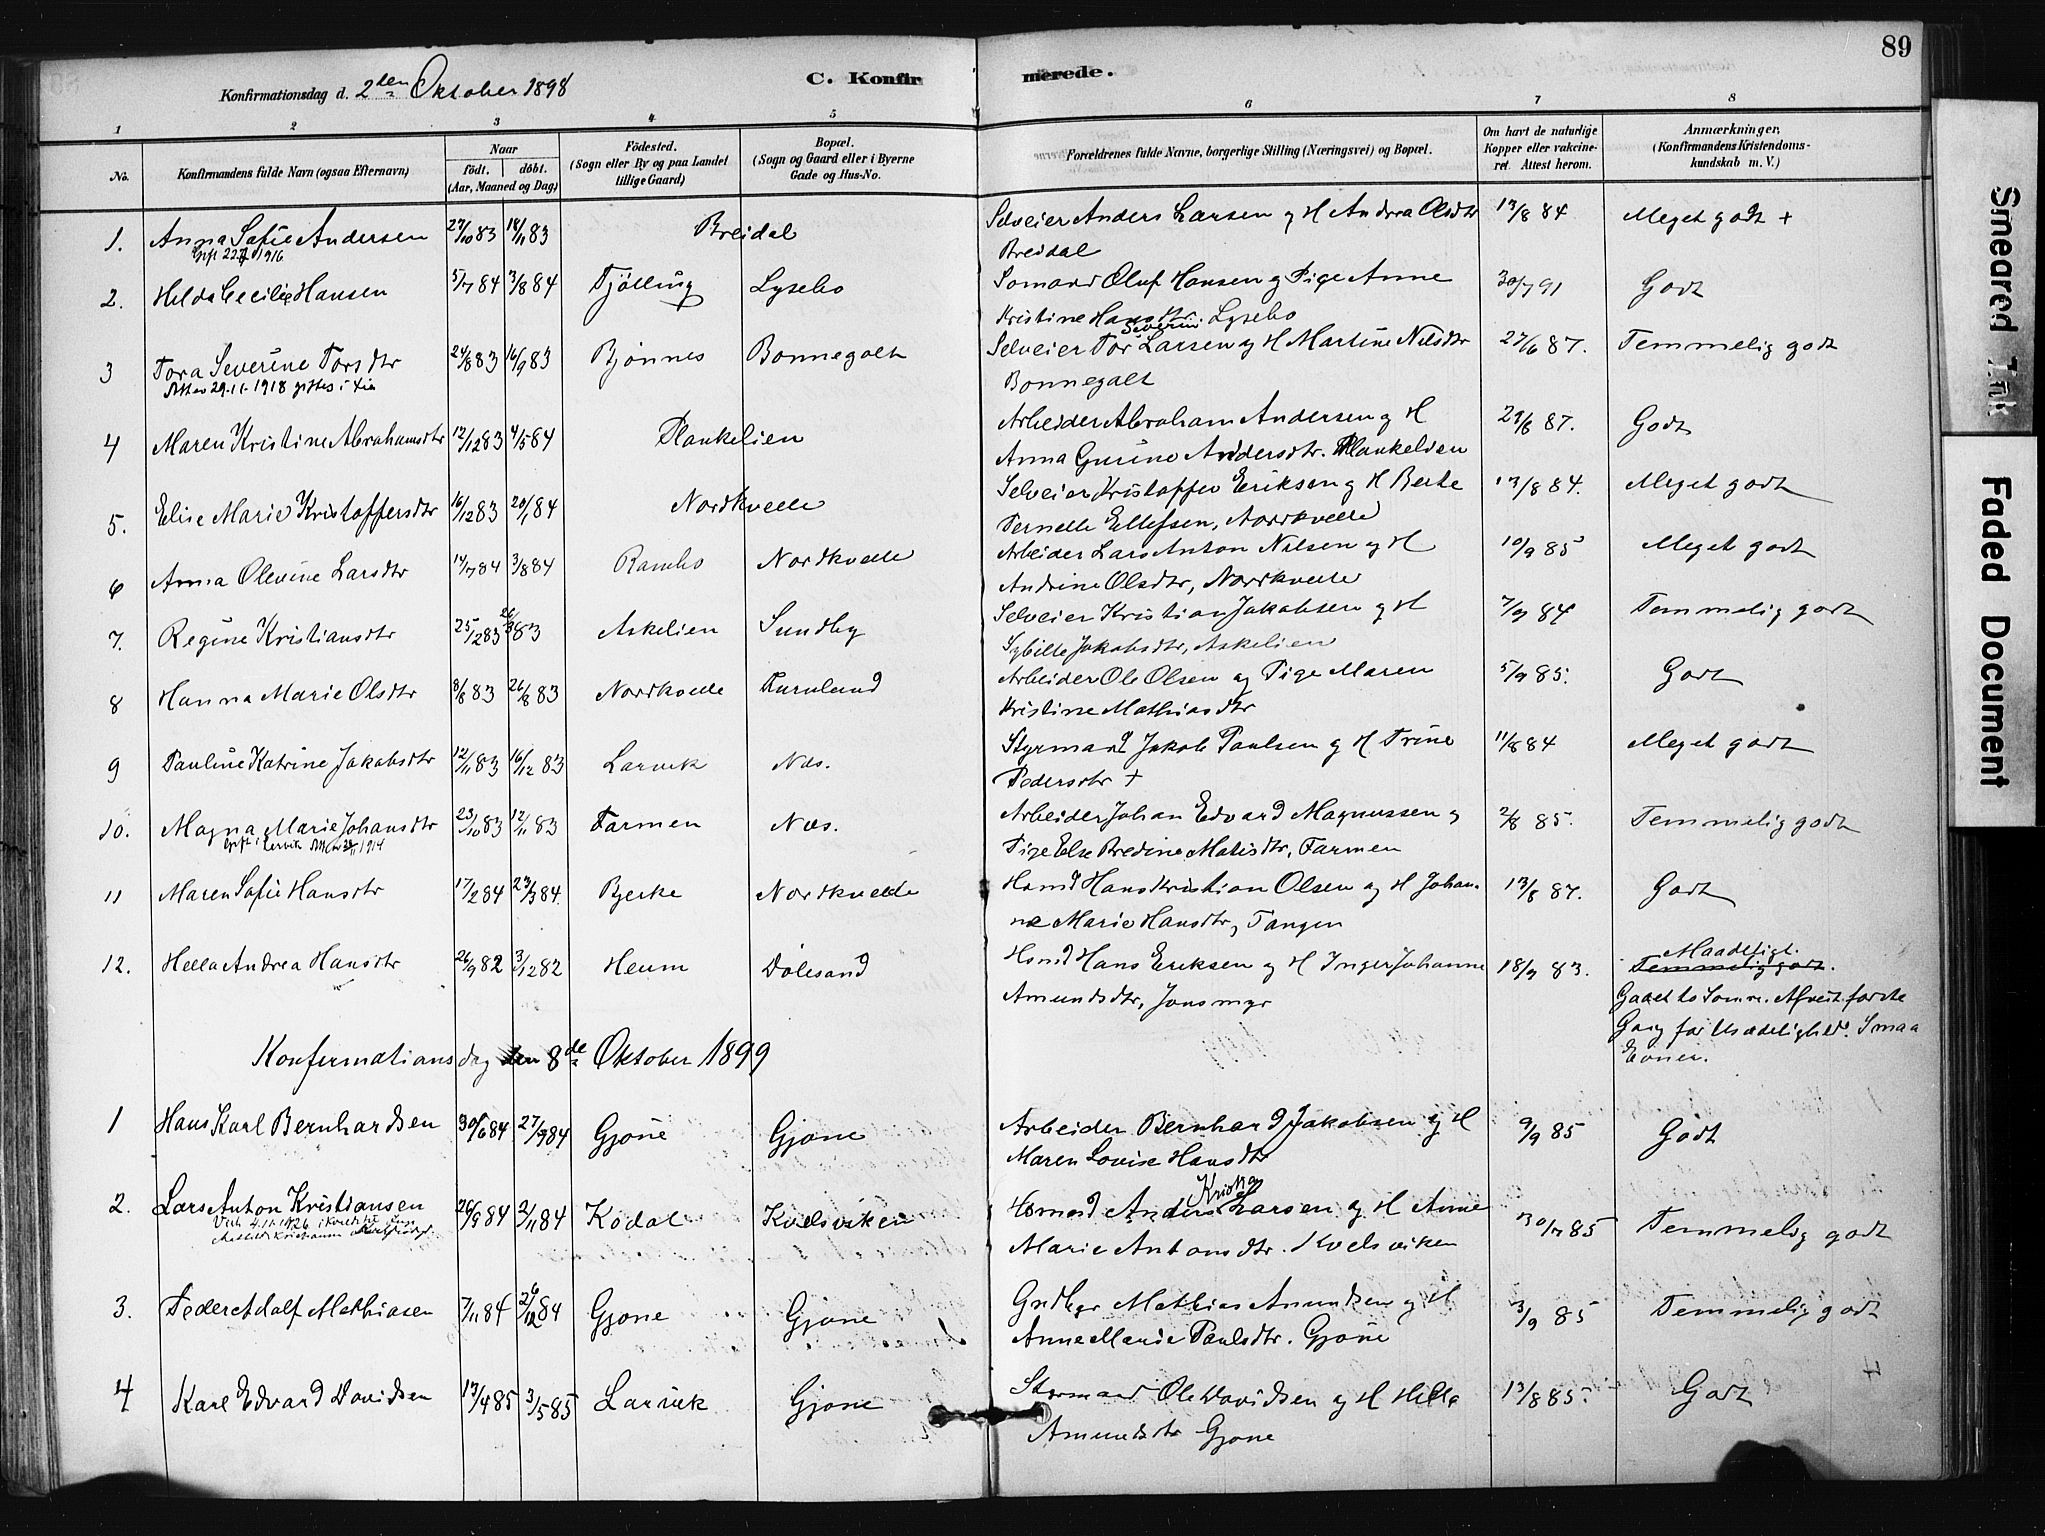 89
Konfirmationsdag d. 2den Oktober 1898
C. Konfirmerede.
1 2 3 4 5 6 7 8
No. Konfirmandens fulde Navn (ogsaa Efternavn) Naar födt. döbt. (Aar, Maaned og Dag) Födested. (Sogn eller By og paa Landet tillige Gaard) Bopæl. (Sogn og Gaard eller i Byerne Gade og Hus-No. Forældrenes fulde Navne, borgerlige Stilling (Næringsvei) og Bopæl. Om havt de naturlige Kopper eller vakcineret. Attest herom. Anmærkninger. (Konfirmandens Kristendomskundskab m. V.)
1. Anna Sofie Andersen 27/10 83 18/11 83 Breidal Selveier Anders Larsen og H Andrea Olsdtr 13/8 84 Meget godt +
gift 1916 Breidal
2. Hilda Cecilie Hansen 5/7 84 3/8 84 Tjölling Lysebo Somand Oluf Hansen og Pige Anne 30/7 91 Godt
Kristine Hansdtr. Lysebo
3 Tora Severine Torsdtr 24/8 83 16/9 83 Bjönnes Bonnegolt Selveier Tor Severin Larsen og H Martine Nilsdtr 27/6 87. Temmelig godt
Attev 29-11-1918 giftes i Bonnegolt
4 Maren Kristine Abrahamsdtr 12/12 83 4/5 84 Plankelien Arbeider Abraham Andersen og H 29/6 87. Godt
Anna Gurine Andersdtr. Plankelien
5. Elise Marie Kristoffersdtr 16/12 83 20/1 84 Nordkvelle Selveier Kristoffer Eriksen og H Berte 13/8 84. Meget godt
Pernelle Ellefsen, Nordkvelle
6 Anna Olevine Larsdtr 14/7 84 3/8 84 Rambo Nordkvelle Arbeider Lars Anton Nilsen og H 10/9 85 Meget godt
Andrine Olsdtr, Nordkvelle
7. Regine Kristiansdtr 25/2 83 26/3 83 Askelien Sundby Selveier Kristian Jakobsen og H 7/9 84 Temmelig godt
Sybille Jakobsdtr, Askelien
8 Hanna Marie Olsdtr 8/8 83 26/8 83 Nordkvelle Furulund Arbeider Ole Olsen og Pige Maren 5/9 85. Godt
Kristine Mathiasdtr
9 Pauline Katrine Jakobsdtr 12/11 83 16/12 83 Larvik Næs. Styrmand Jakob Paulsen og H Trine 11/8 84 Meget godt
Pedersdtr +
10. Magna Marie Johansdtr 23/10 83 12/11 83 Farmen Næs. Arbeider Johan Edvard Magnussen og 2/8 85. Temmelig godt
gift i Larvik 1914 Pige Else Bredine Matisdtr, Farmen
11 Maren Sofie Hansdtr 17/2 84 23/3 84. Bjerke Nordkvelle Hsmd Hans Kristian Olsen og H Johan- 13/8 87. Godt
ne Marie Hansdtr, Tangen
12. Hella Andrea Hansdtr 26/9 82 3/12 82 Heum Dölesand Hsmd Hans Eriksen og H Inger Johanne 18/9 83. Temmelig godt. Maadeligt.
Amundsdtr, Jonsmyr Gaaet to Somre. Afvist förste
Gang for Usædelighed. Smaa
Evner.
Konfirmationsdag den 8de Oktober 1899
1 Hans Karl Bernhardsen 30/6 84 27/9 84 Gjone Gjone Arbeider Bernhard Jakobsen og H 9/9 85 Godt
Maren Lovise Hansdtr
2. Lars Anton Kristiansen 26/9 84 2/11 84 Kodal Kvelsviken Hsmand Anders Larsen og H Anne 30/7 85 Temmelig godt
Marie Antonsdtr. Kvelsviken
3. Peder Adolf Mathiasen 7/11 84 26/12 84 Gjone Gjone Grdbgr Mathias Amundsen og H 3/9 85 Temmelig godt
Anne Marie Paulsdtr. Gjone
4 Karl Edvard Davidsen 13/4 85 3/5 85 Larvik Gjone Styrmand Ole Davidsen og H Hella 13/8 85. Godt
Amundsdtr Gjone
Smeared Ink
Faded Document